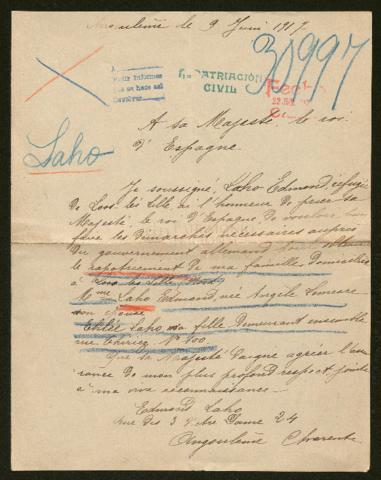 Angoulême le 9 Juin 1917.
30997
Pedir informes
que se hace así
REPATRIACIÓN
CIVIL
A sa Majesté le roi
d'Espagne.
Laho
Je soussigné, Laho Edmond, réfugié
de Loos lez Lille ai l'honneur de prier sa
Majesté le roi d'Espagne de vouloir bien
faire les démarches nécessaires auprès
du gouvernement allemand
le rapatriement de ma famille domiciliée
à Loos lez Lille Nord
Mme Laho Edmond, née Angèle
son épouse
Laho sa fille demeurant ensemble
rue Thiriez No 100.
Que sa Majesté daigne agréer l'assu-
rance de mon plus profond respect jointe
à ma vive reconnaissance.
Edmond Laho
Rue des 3 Notre Dame 24
Angoulême Charente